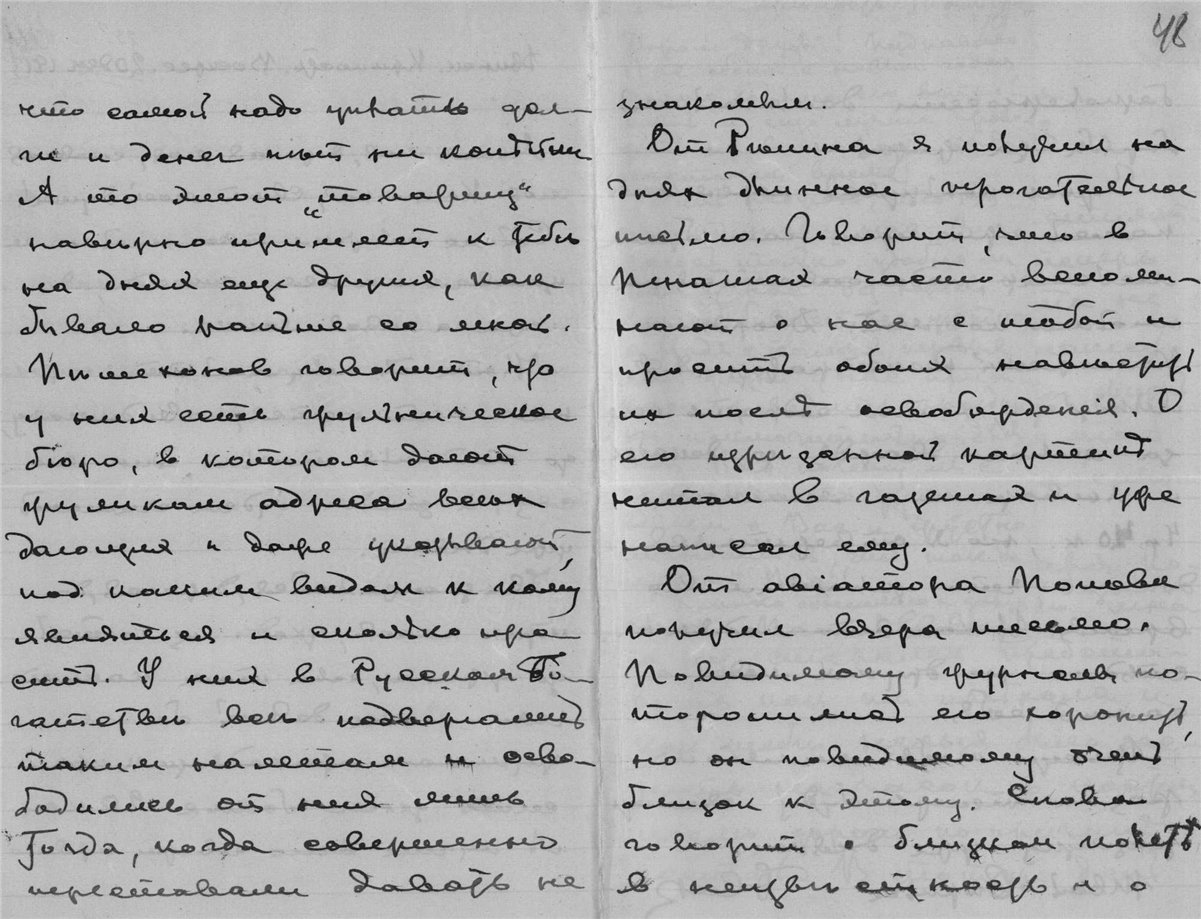 что самой надо уплатить дол-
ги и денег нѣт ни копѣйки
А то этот „товарищ“
навѣрно пришлет к тебѣ
на днях еще других, как
бывало раньше со мной.
Пѣшехонов говорит, что
у них есть жульническое
бюро, в котором дают
жуликам адреса всѣх
дающих и даже указывают,
под каким видом к кому
явиться и сколько про-
сить. У них в Русском Бо-
гатствѣ всѣ подвергались
таким налетам и осво-
бодились от них лишь
тогда, когда совершенно
переставали давать не
48
знакомым.
От Рѣпина я получил на
днях длинное трогательное
письмо. Говорит, что в
Пенатах часто вспоми-
нают о нас с тобой и
просит обоих навѣстить
их послѣ освобожденiя. О
его изрѣзанной картинѣ
читал в газетах и уже
написал ему.
От авiатора Попова
получил вчера письмо.
Повидимому журналы по-
торопились его хоронить,
но он повидимому очень
близок к этому. Снова
говорит о близком полетѣ
в неизвѣстность и о